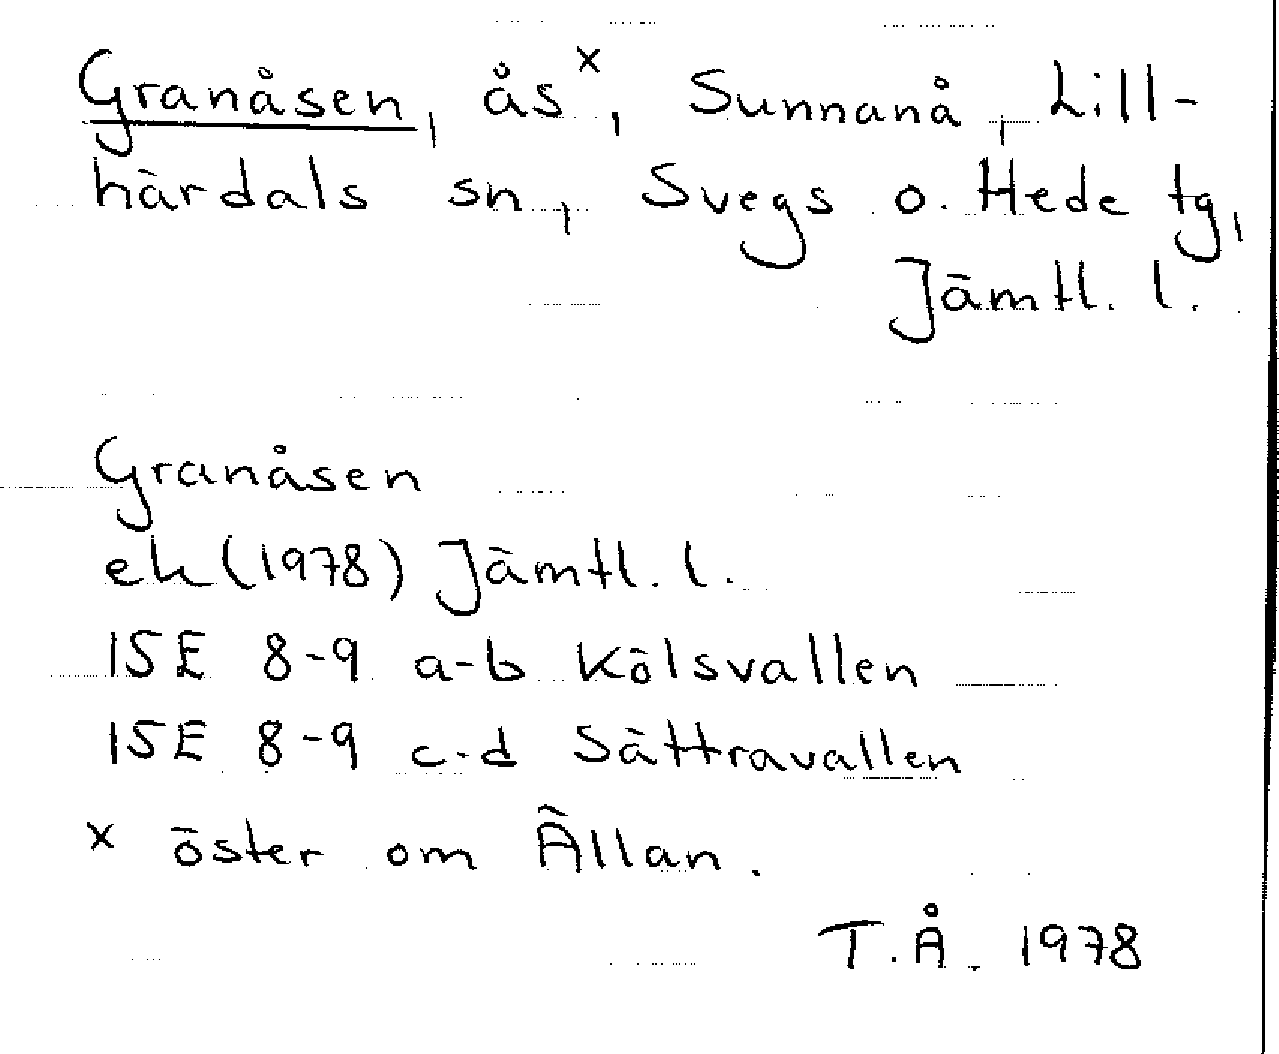 Granåsen, ås x, Sunnanå, Lill-
härdals sn, Svegs o. Hede tg,
Jämtl. l.
Granåsen
ek (1978) Jämtl. l.
15E 8-9 a-b Kölsvallen
15E 8-9 c-d Sättravallen
x öster om Ällan.
T.Å. 1978